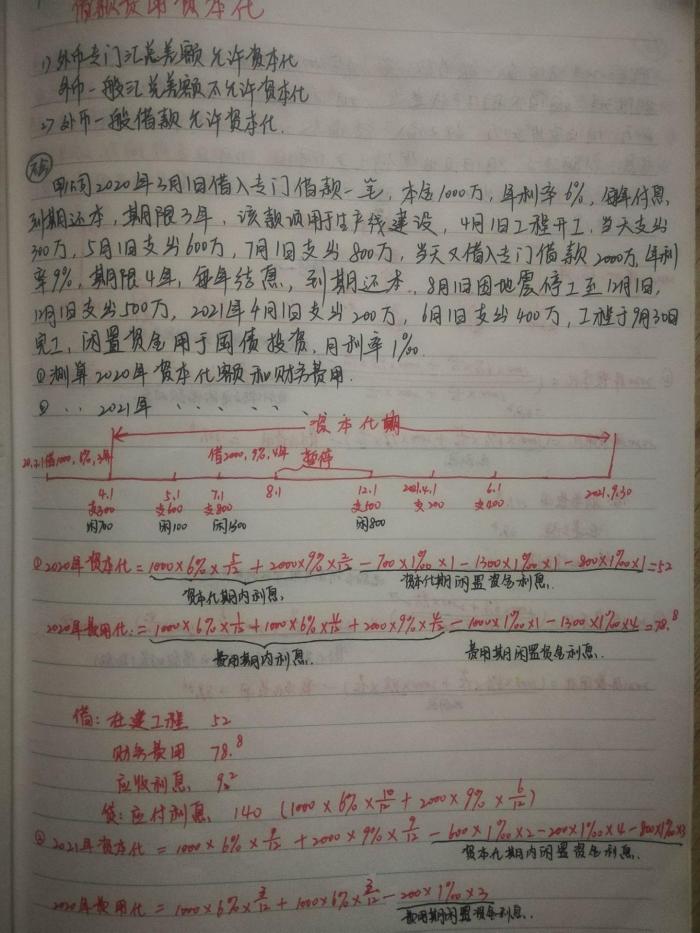 借款费用资本化
1) 外币专门汇兑差额允许资本化
外币一般汇兑差额不允许资本化
2) 外币一般借款允许资本化.
甲公司2020年3月1日借入专门借款一笔，本金1000万，年利率6%，每年付息，
到期还本，期限3年，该款项用于生产线建设，4月1日工程开工，当天支出
300万，5月1日支出600万，7月1日支出800万，当天又借入专门借款2000万，年利
率9%，期限4年，每年结息，到期还本，8月1日因地震停工至12月1日，
12月1日支出500万，2021年4月1日支出200万，6月1日支出400万，工程于9月30日
完工，闲置资金用于国债投资，月利率1‰.
①测算2020年资本化额和财务费用.
② 〃 〃 2021年 〃 〃 〃 〃 〃 〃
资本化期
20.3.1借1000, 6%, 3年 借2000, 9%, 4年 暂停
4.1 5.1 7.1 8.1 12.1 2021.4.1 6.1 2021.9.30
支300 支600 支800 支500 支200 支400
闲700 闲100 闲1300 闲800
①2020年资本化=1000×6%×5/12+2000×9%×2/12-700×1‰×1-1300×1‰×1-800×1‰×1=52
资本化期内利息. 资本化期闲置资金利息.
2020年费用化:=1000×6%×1/12+1000×6%×4/12+2000×9%×4/12-1000×1‰×1-1300×1‰×4=78.8
费用期内利息. 费用期闲置资金利息.
借：在建工程 52
财务费用 78.8
应收利息 9.2
贷：应付利息 140 (1000×6%×10/12+2000×9%×6/12)
②2021年资本化=1000×6%×9/12+2000×9%×9/12-600×1‰×2-200×1‰×4-800×1‰×3
资本化期内闲置资金利息.
2020年费用化=1000×6%×3/12+1000×6%×3/12-200×1‰×3
费用期闲置资金利息.